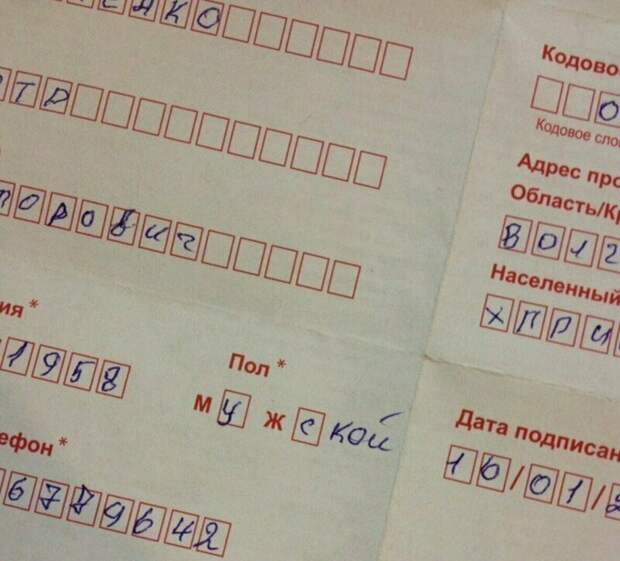 ЕНКО
ТР
ОРОВИЧ
ия *
1958
Пол *
М У Ж С КОЙ
ефон *
6779642
Кодово
О
Кодовое сло
Адрес про
Область/Кр
ВОЛГ
Населенный
Дата подписан
10/01/2